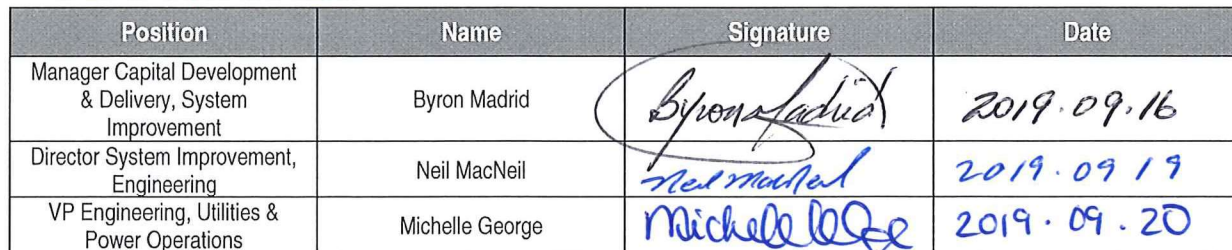 Position Name Signature Date
Manager Capital Development
& Delivery, System
Improvement
Byron Madrid
Byron Madrid
2019.09.16
Director System Improvement,
Engineering
Neil MacNeil
Neil MacNeil
2019.09 19
VP Engineering, Utilities &
Power Operations
Michelle George
Michelle
2019.09.20